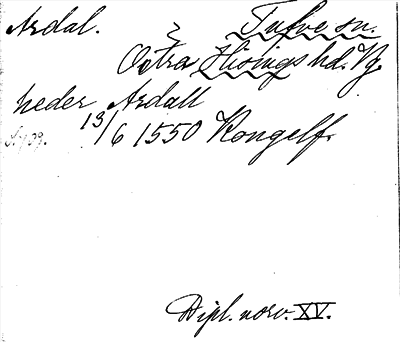 Ardal. Tufve sn.
Östra Hisings hd. Vg.
neder Ardall
13/6 1550 Kongelf.
Dipl. norv. XV.